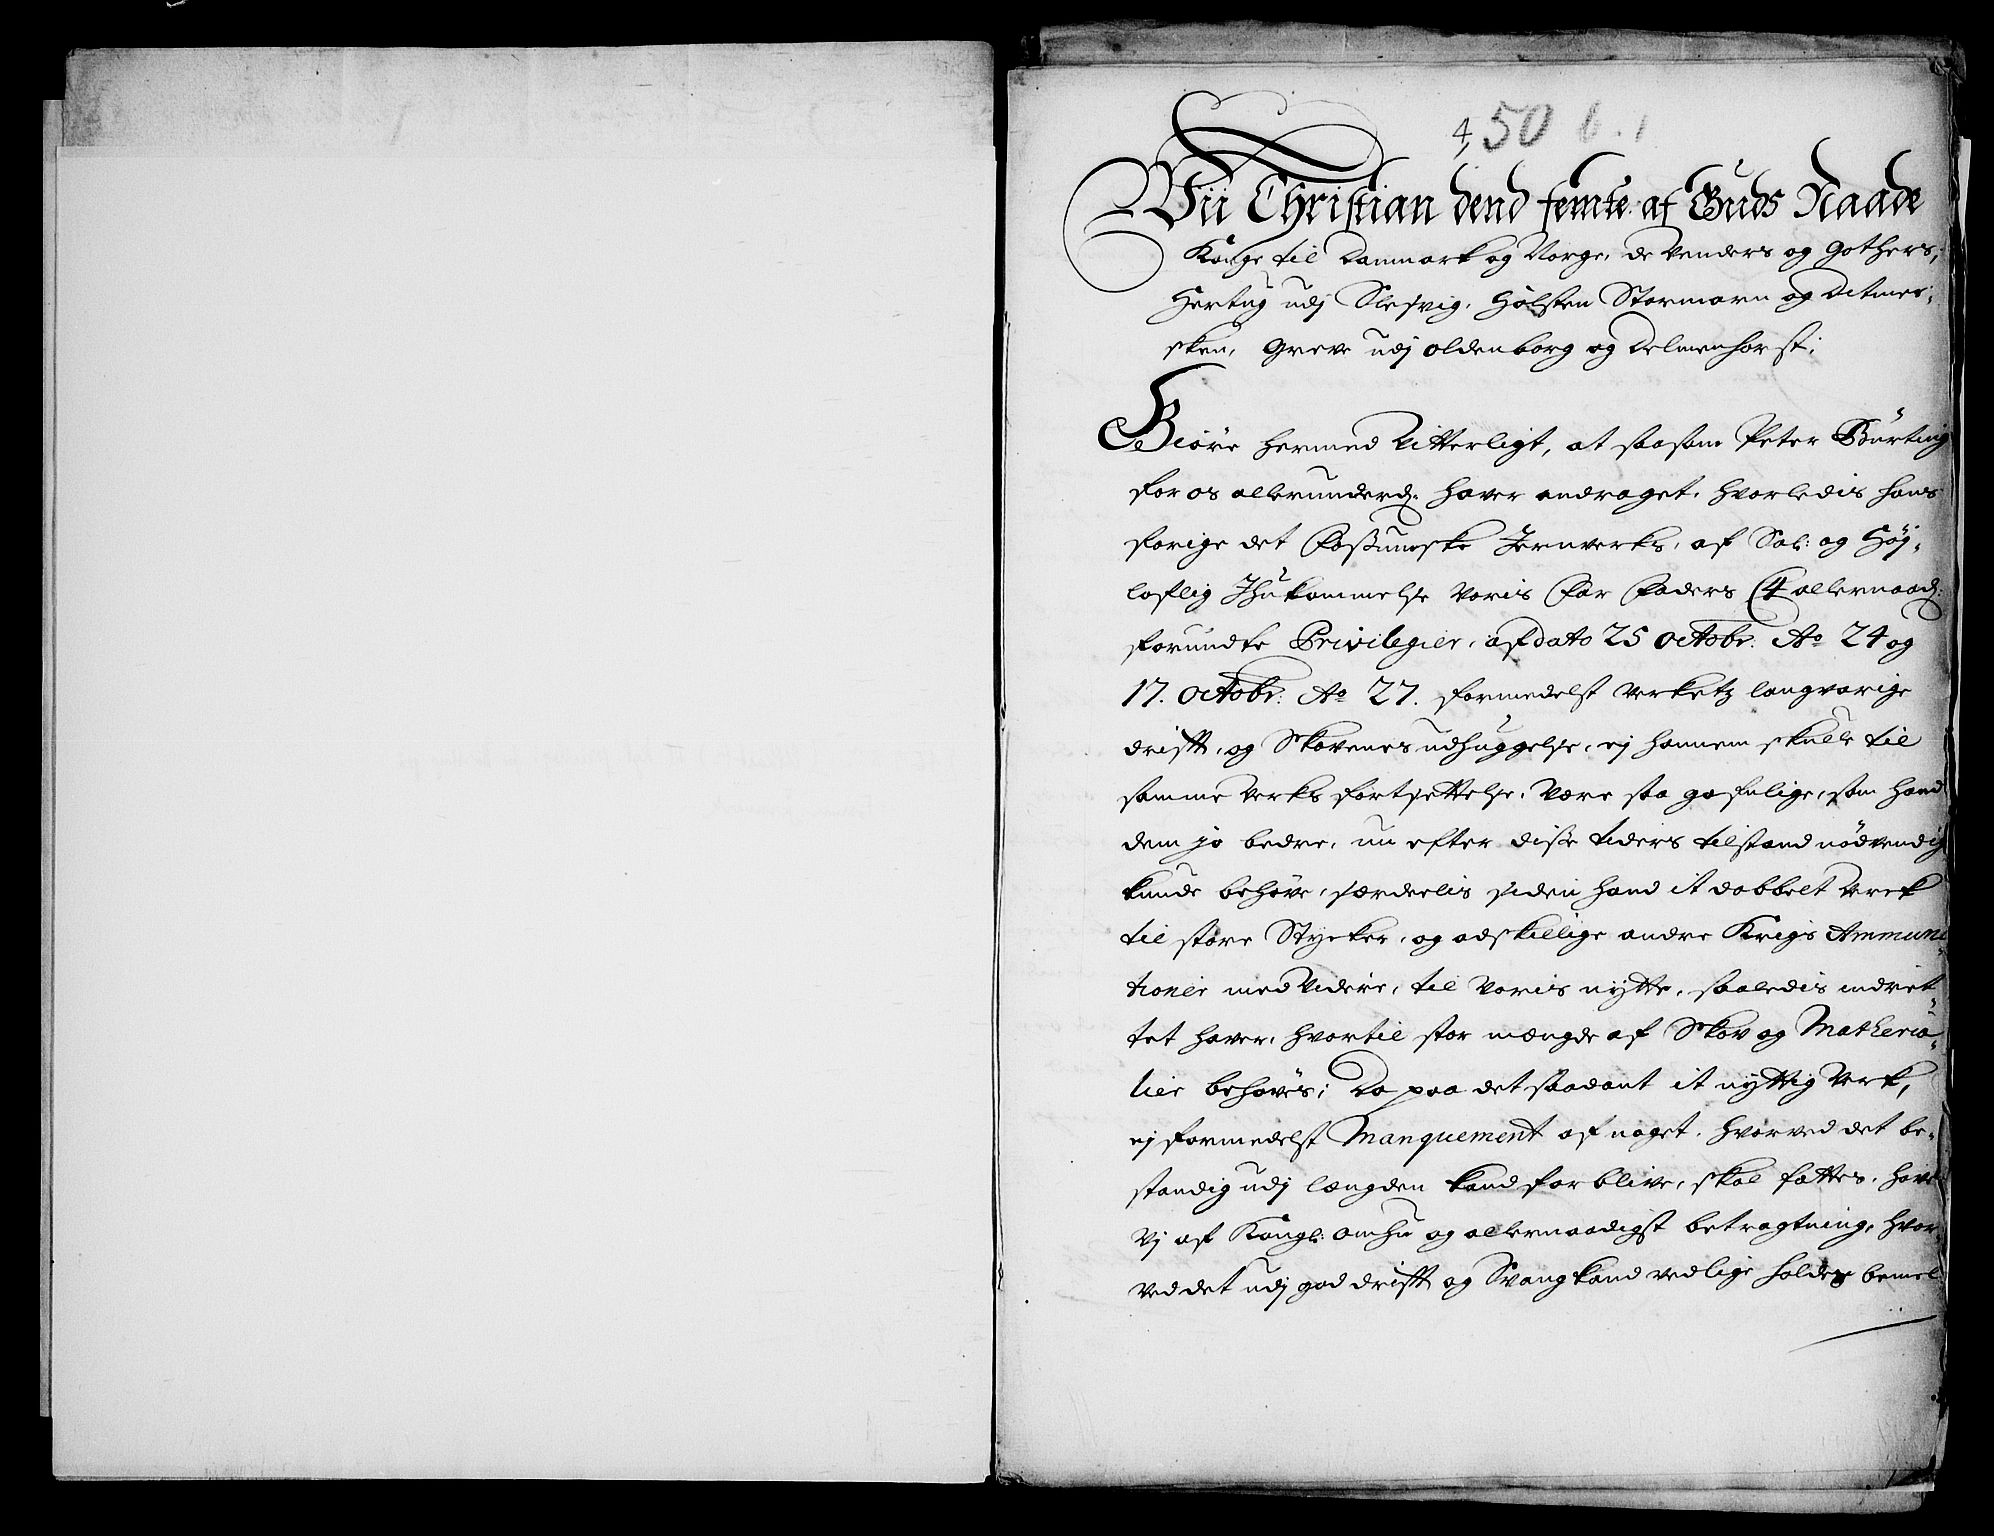 4, 50 b. 1
Wii Christian dend femte af Guds Naade
Konge til Danmark og Norge, de Venders og Gothers,
Hertug udj Slesvig, Holsten Stormarn og Ditmer-
sken, Greve udj Oldenborg og Delmenhorst;
Giöre hermed Vitterligt, at saasom Peter Börting
for os allerunderd: haver andraget, hvorledis hans
forige det Fossumske Jernverks, af Sal: og Höj-
loflig Jhukommelse Voris Far Faders C4 allernaad:
forundte Privilegier, af dato 25 Octobr: Ao 24 og
17. Octobr: Ao 27. formedelst Verketz langvarige
drifft, og Skovenes udhuggelse, ej hannem skulle til
samme Verks fortsettelse, Være saa gafnlige, som hand
dem jo bedre, nu efter disse tiders tilstand nödvendig
kunde behöve, særdelis siden hand it dobbelt Verk
til store Stycker, og adskillige andre Krigs Ammuni
tioner med Videre, til Voris nytte, saaledis indret-
tet haver, hvortil stor mængde af Skov og Matheria-
lier behöves; Da paa det saadant it nyttig Verk,
ej formedelst Manquement af noget, hvorved det be-
standig udj længden kand forblive, skal fattes, have
Vj af Kongl: omhu og allernaadigst betragtning, hvor
ved det udj god drifft og Svang kand vedlige holdes bemel